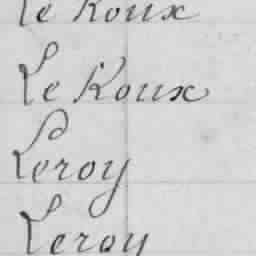 Le Roux
Le Roux
Leroy
Leroy